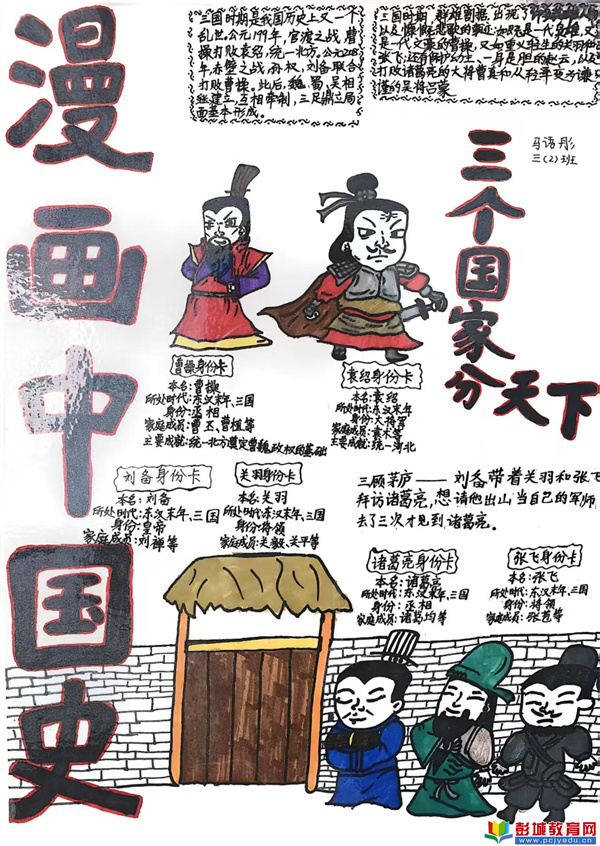 漫画中国史
三国时期是我国历史上又一个
乱世,公元199年,官渡之战,曹
操打败袁绍,统一北方,公元208
年,赤壁之战,孙权,刘备联合
打败曹操。此后,魏、蜀、吴相
继建立,互相牵制,三足鼎立局
面基本形成。
三国时期,群雄割据,出现了许
以及慷慨悲歌的事迹:如既是一代枭雄,又
是一代文豪的曹操,又如重义轻生的关羽和
张飞;还有保护幼主,一身是胆的赵云,以及
打败诸葛亮的大将曹真和从
谨的吴将吕蒙
三个国家分天下
马语彤
三(2)班
曹操身份卡
本名:曹操
所处时代:东汉末年、三国
身份:丞相
家庭成员:曹丕、曹植等
主要成就:统一北方奠定曹魏政权的基础
袁绍身份卡
本名:袁绍
所处时代:东汉末年
身份:大将军
家庭成员:袁术等
主要成就:统一河北
刘备身份卡
本名:刘备
所处时代:东汉末年、三国
身份:皇帝
家庭成员:刘禅等
关羽身份卡
本名:关羽
所处时代:东汉末年、三国
身份:将领
家庭成员:关毅、关平等
三顾茅庐——刘备带着关羽和张飞
拜访诸葛亮,想请他出山当自己的军师,
去了三次才见到诸葛亮。
诸葛亮身份卡
本名:诸葛亮
所处时代:东汉末年、三国
身份:丞相
家庭成员:诸葛均等
张飞身份卡
本名:张飞
所处时代:东汉末年、三国
身份:将领
家庭成员:张苞等
彭城教育网
www.pcjyedu.cn